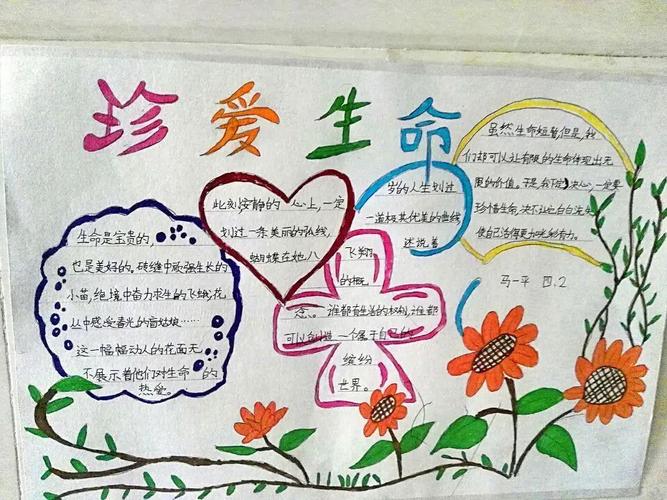 珍爱生命
生命是宝贵的,
也是美好的,砖缝中顽强生长的
小苗,绝境中奋力求生的飞蛾,花
丛中感受春光的盲姑娘……
这一幅幅动人的花面无
不展示着他们对生命的
热爱。
此刻安静的心上,一定
划过一条美丽的弘线,
蝴蝶在她八
岁的人生划过
一道极其优美的曲线
述说着
飞翔
的概
念。谁都有生活的权利,谁都
可以创造一个属于自己的
缤纷
世界。
虽然生命短暂但是,我
们却可以让有限的生命体现出无
限的价值。于是,我下定决心,一定要
珍惜生命,决不让它白白流失
使自己活得更加光彩有力。
马一平 四.2